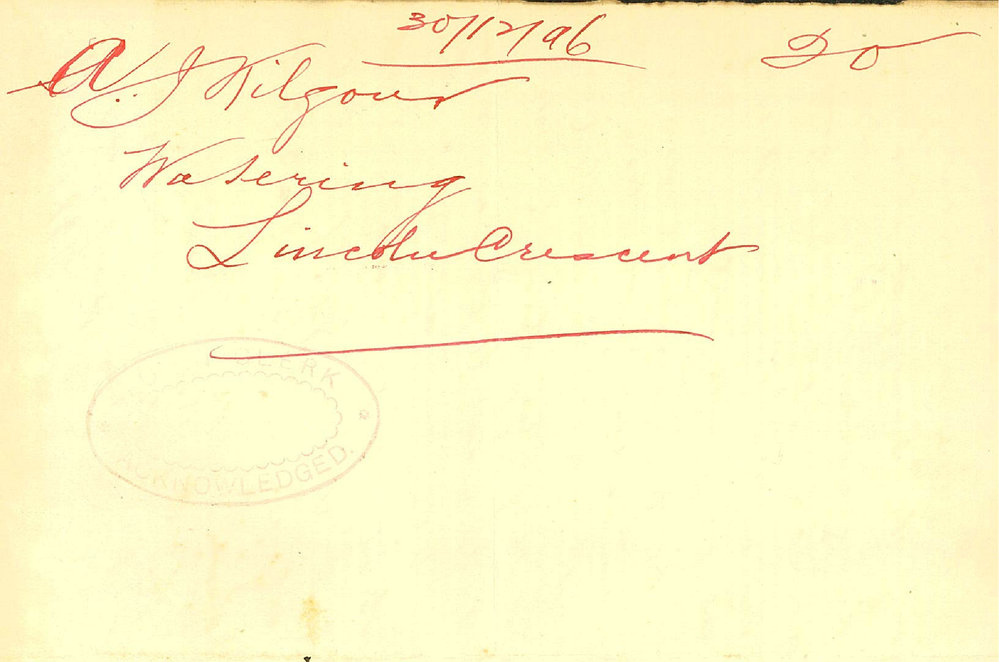 30/12/96
20
A. J Kilgour
Watering
Lincoln Crescent
CLERK
ACKNOWLEDGED.